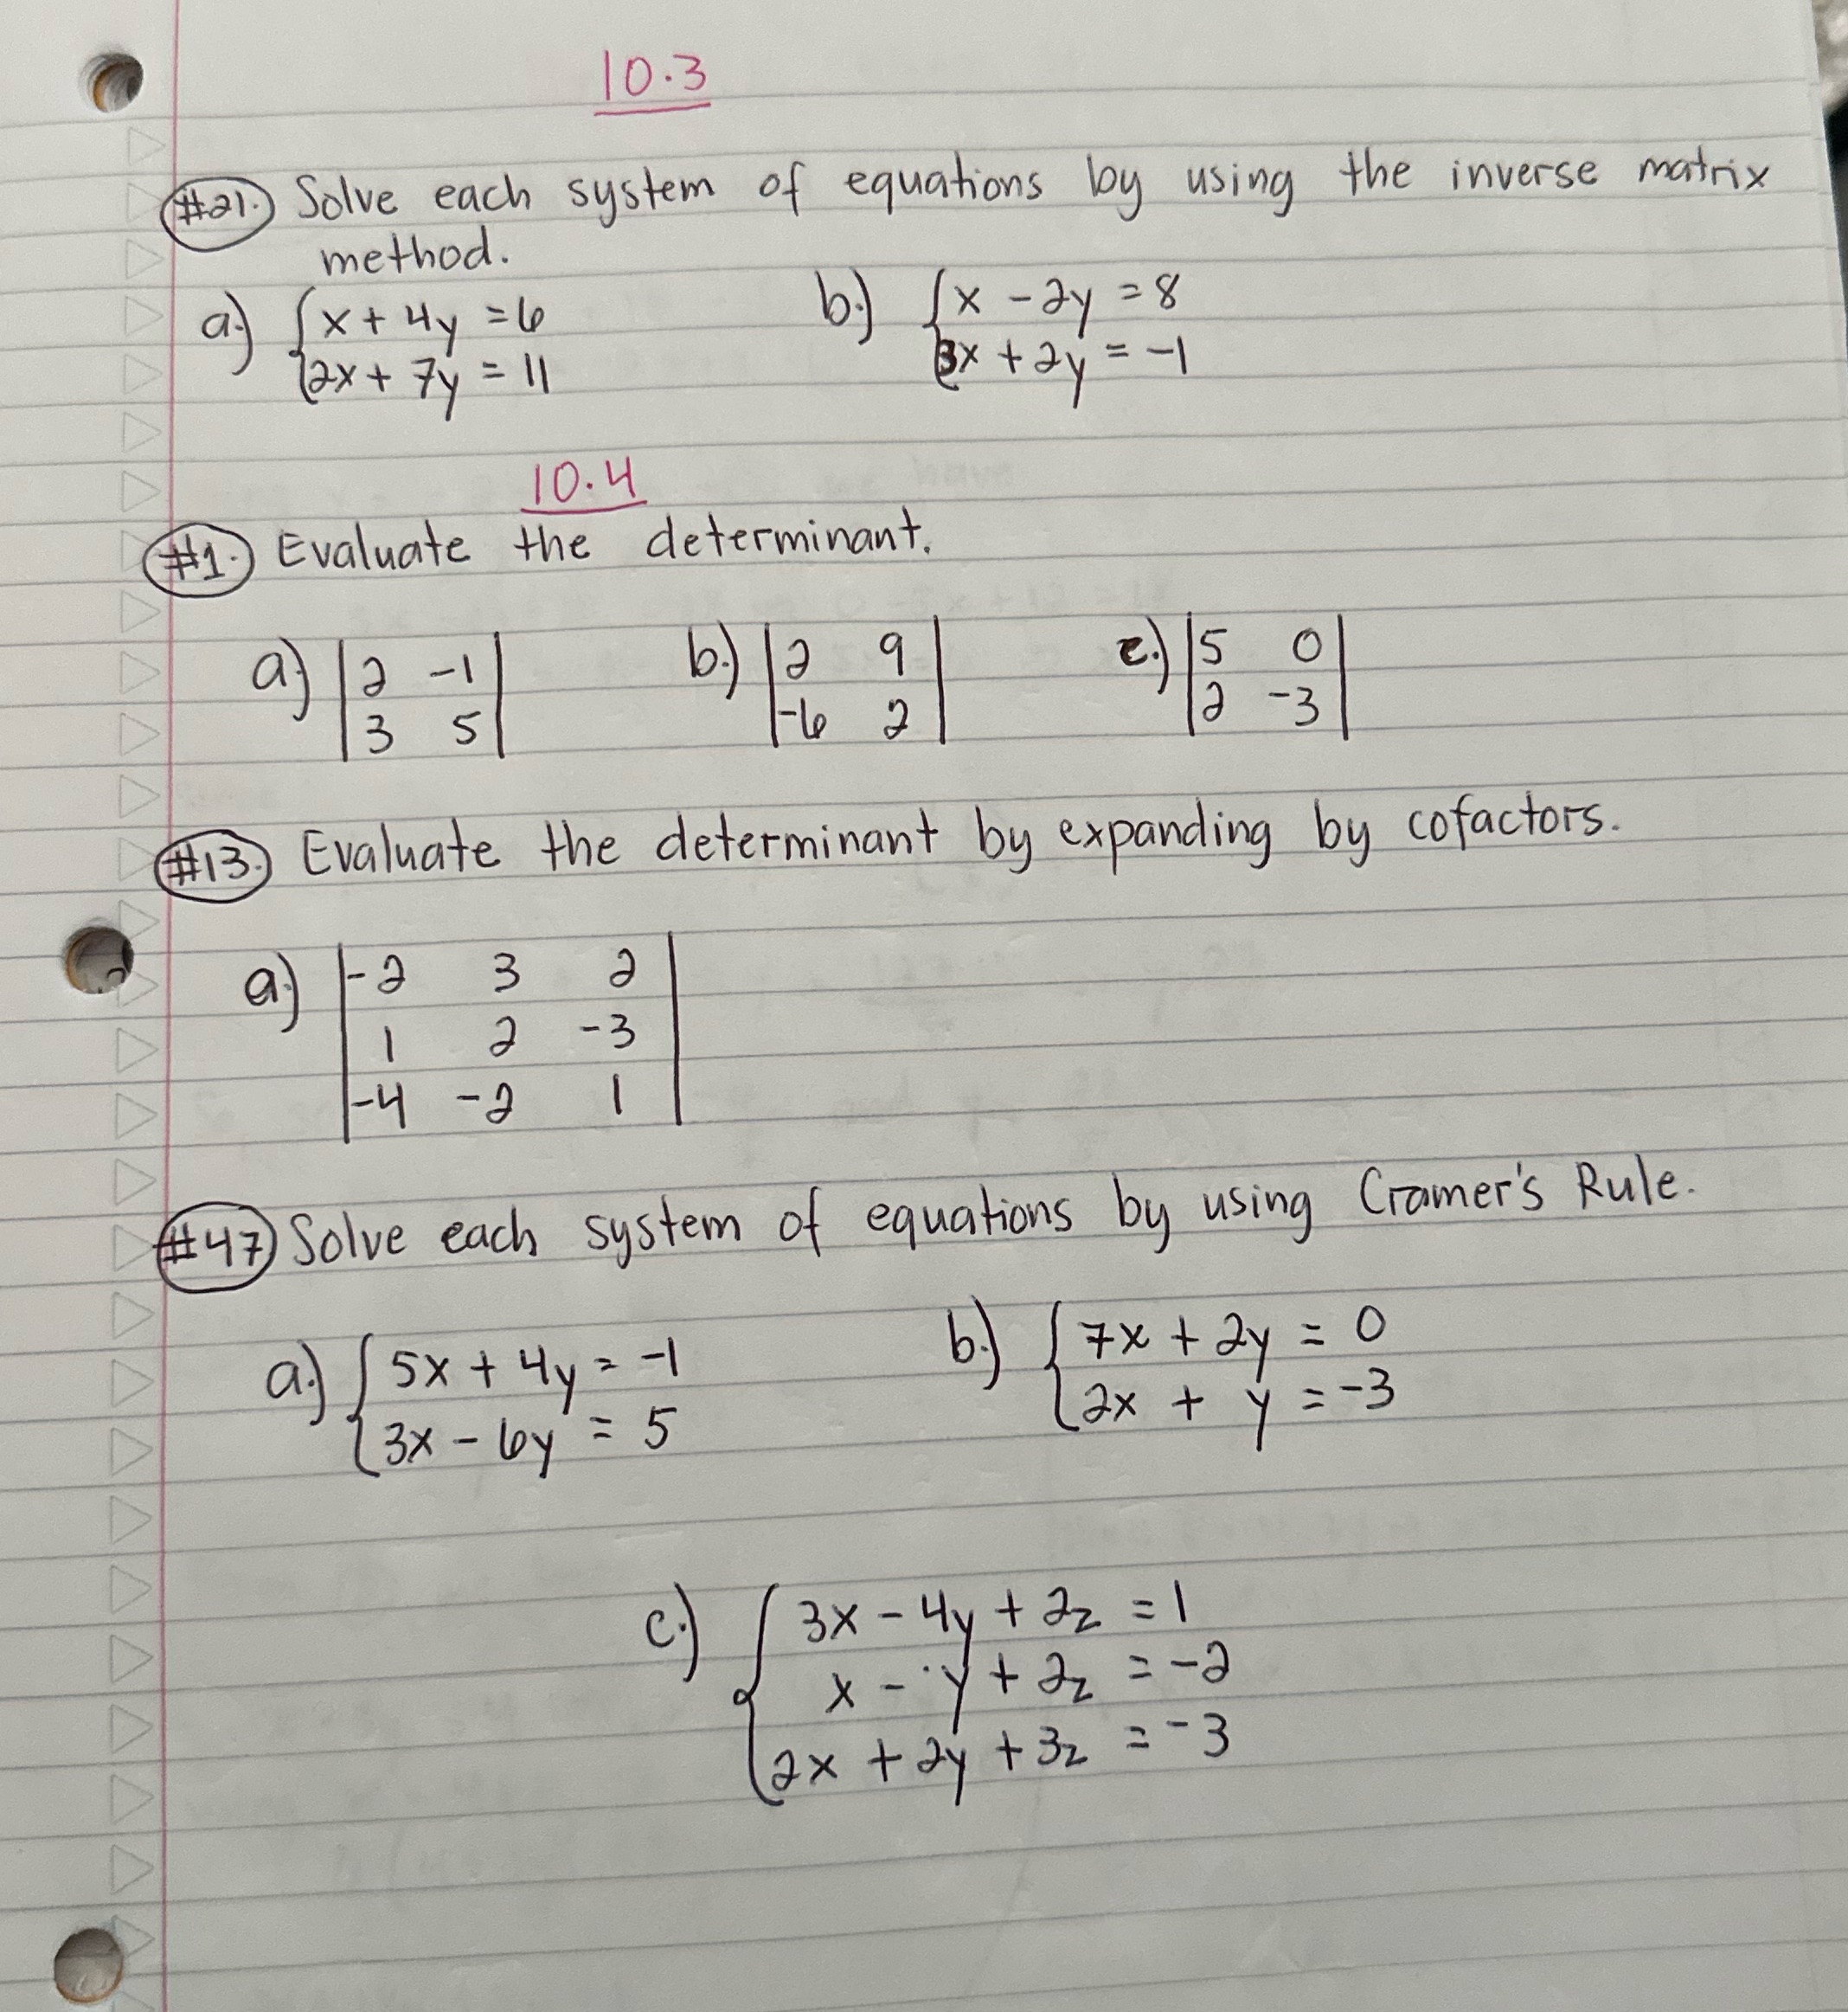 10.3
#21. Solve each system of equations by using the inverse matrix
method.
a.) { x + 4y = 6 b.) { x - 2y = 8
2x + 7y = 11 3x + 2y = -1
10.4
#1. Evaluate the determinant.
a.) | 2 -1 | b.) | 2 9 | c.) | 5 0 |
| 3 5 | | -6 2 | | 2 -3 |
#13. Evaluate the determinant by expanding by cofactors.
a.) | -2 3 2 |
| 1 2 -3 |
| -4 -2 1 |
#47 Solve each system of equations by using Cramer's Rule.
a.) { 5x + 4y = -1 b.) { 7x + 2y = 0
3x - 6y = 5 2x + y = -3
c.) { 3x - 4y + 2z = 1
x - y + 2z = -2
2x + 2y + 3z = -3